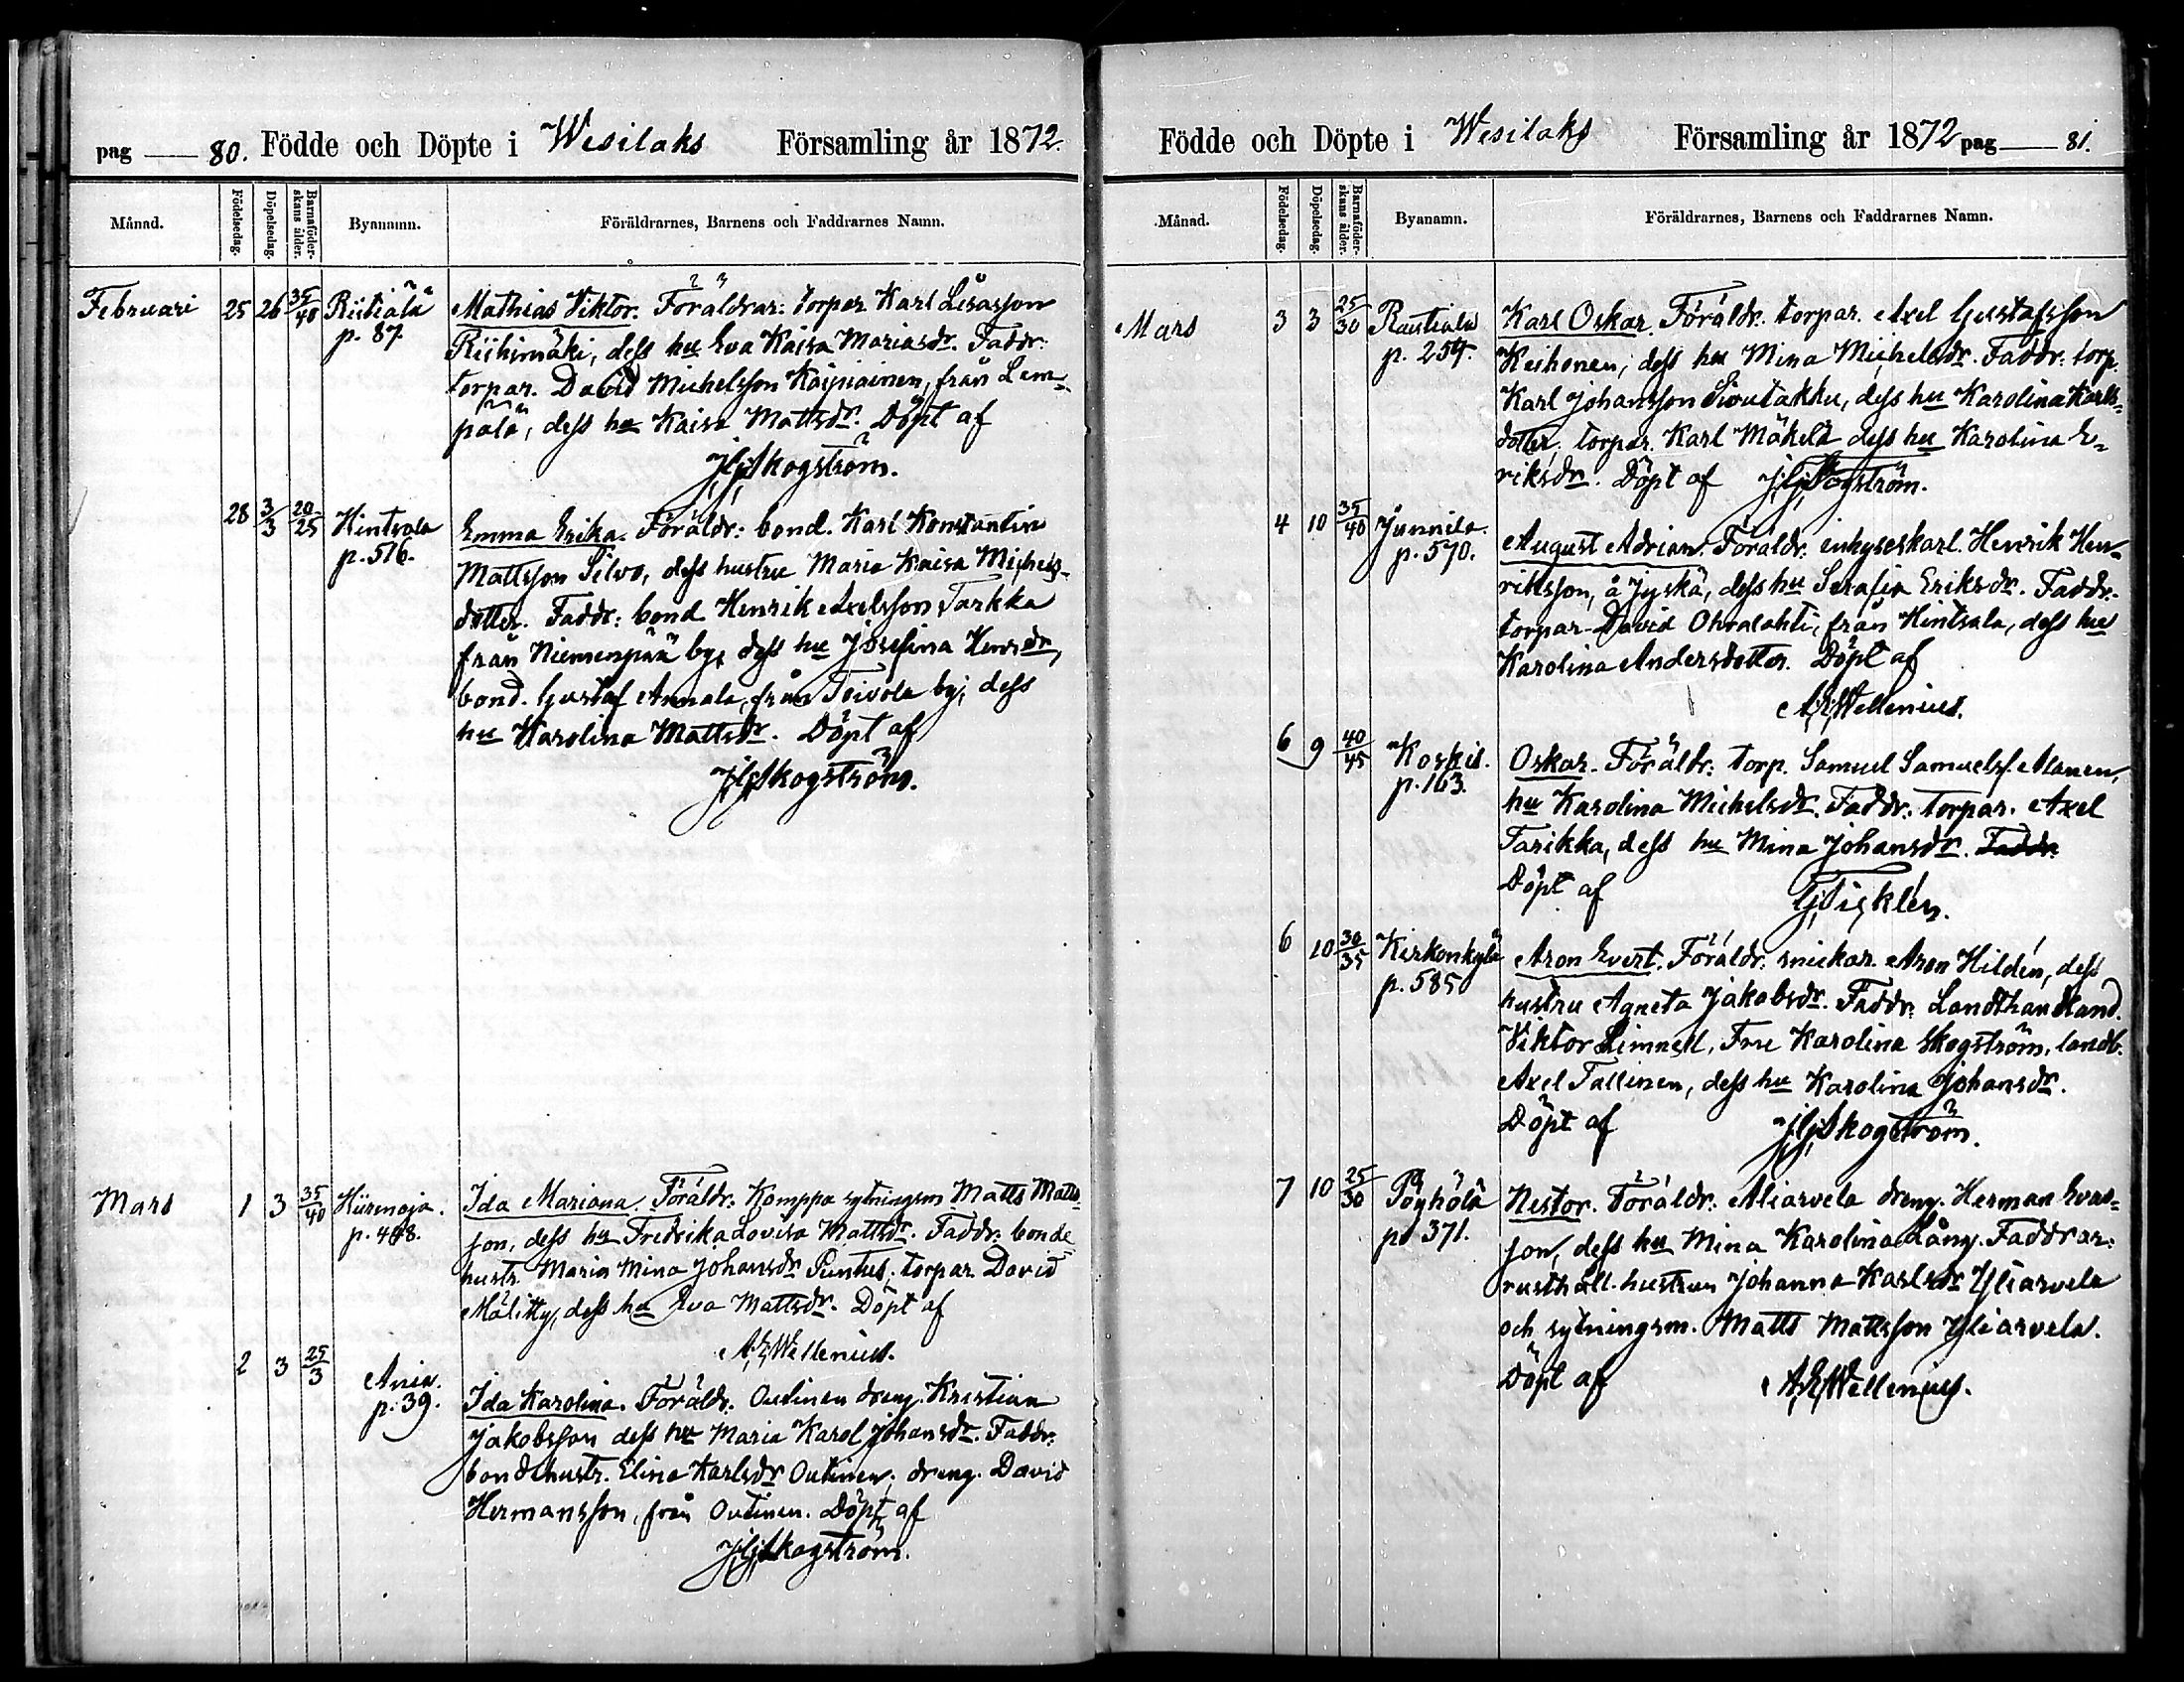 pag 80. Födde och Döpte i Wesilaks Församling år 1872.
Månad. Födelsedag. Döpelsedag. Barnaföderskans ålder. Byanamn. Föräldrarnes, Barnens och Faddrarnes Namn.
Februari 25 26 35/40 Riitiälä p. 87.
Mathias Viktor. Föräldrar: torpar Karl
Riihimäki, dess hu Eva Kaisa Mariasdr. Faddr:
torpar. David Michelsson Kaipiainen, från Lem-
pälä, dess hu Kaisa Mattsdr. Döpt af
Skogström.
28 3/3 20/25 Hintsala p. 516.
Emma Erika. Föräldr: bond. Karl Konstantin
Mattsson Silvo, dess hustru Maria Kaisa Michels-
dotter. Faddr: bond Henrik Axelsson Tarkka
från Niemenpää by, dess hu Josefina Henrsdr,
bond. Gustaf Annala, från Toivola by, dess
hu Karolina Mattsdr. Döpt af
Skogström.
Mars 1 3 35/40 Hiirmoja.
Ida Mariana. Föräldr: Komppa sytningsm Matts Matts-
son, dess hu Fredrika Lovisa Mattsdr. Faddr: bonde
hustr Maria Mina Johansdr Puntus, torpar David
Mälitty, dess hu Eva Mattsdr. Döpt af
A. E. Wellenius.
2 3 25/3 Ania. p. 39.
Ida Karolina. Föräldr. Outinen dreng. Kristian
Jakobsson dess hu Maria Karol Johansdr. Faddr:
bondehustr. Elina Karlsdr Outinen, dreng. David
Hermansson, från Outinen. Döpt af
Skogström.
Födde och Döpte i Wesilaks Församling år 1872 pag 81.
Månad. Födelsedag. Döpelsedag. Barnaföderskans ålder. Byanamn. Föräldrarnes, Barnens och Faddrarnes Namn.
Mars 3 3 25/30 Rautiala p. 254.
Karl Oskar. Föräldr. torpar. Axel Gustafsson
Keihonen, dess hu Mina Michelsdr. Faddr: torp.
Karl Johansson Siwutakku, dess hu Karolina Karls-
dotter, torpar. Karl Mäkelä dess hu Karolina E-
riksdr. Döpt af Skogström.
4 10 35/40 Junnila p. 570.
August Adrian. Föräldr. inhyseskarl. Henrik Hen-
riksson, å Jyskä, dess hu Serafia Eriksdr. Faddr.
torpar David Ohralahti, från Hintsala, dess hu
Karolina Andersdotter. Döpt af
A. E. Wellenius.
6 9 40/45 Koskis. p. 163.
Oskar. Föräldr: torp. Samuel Samuelss. Alanen,
hu Karolina Michelsdr. Faddr: torpar. Axel
Tarikka, dess hu Mina Johansdr. Faddr.
Döpt af
6 10 30/35 Kirkonkylä p. 585
Aron Evert. Föräldr: snickar. Aron Hildén, dess
hustru Agneta Jakobsdr. Faddr: Landthandland.
Viktor Limnell, Fru Karolina Skogström, landb.
Axel Tallinen, dess hu Karolina Johansdr.
Döpt af Skogström.
7 10 25/30 Pöyhölä p. 371.
Nestor. Föräldr: Aliarvela dreng. Herman Evas-
son, dess hu Mina Karolina Lång. Faddrar:
rusthåll. hustrun Johanna Karlsdr Yliarvela
och sytningsm. Matts Mattsson Yliarvela.
Döpt af A. E. Wellenius.